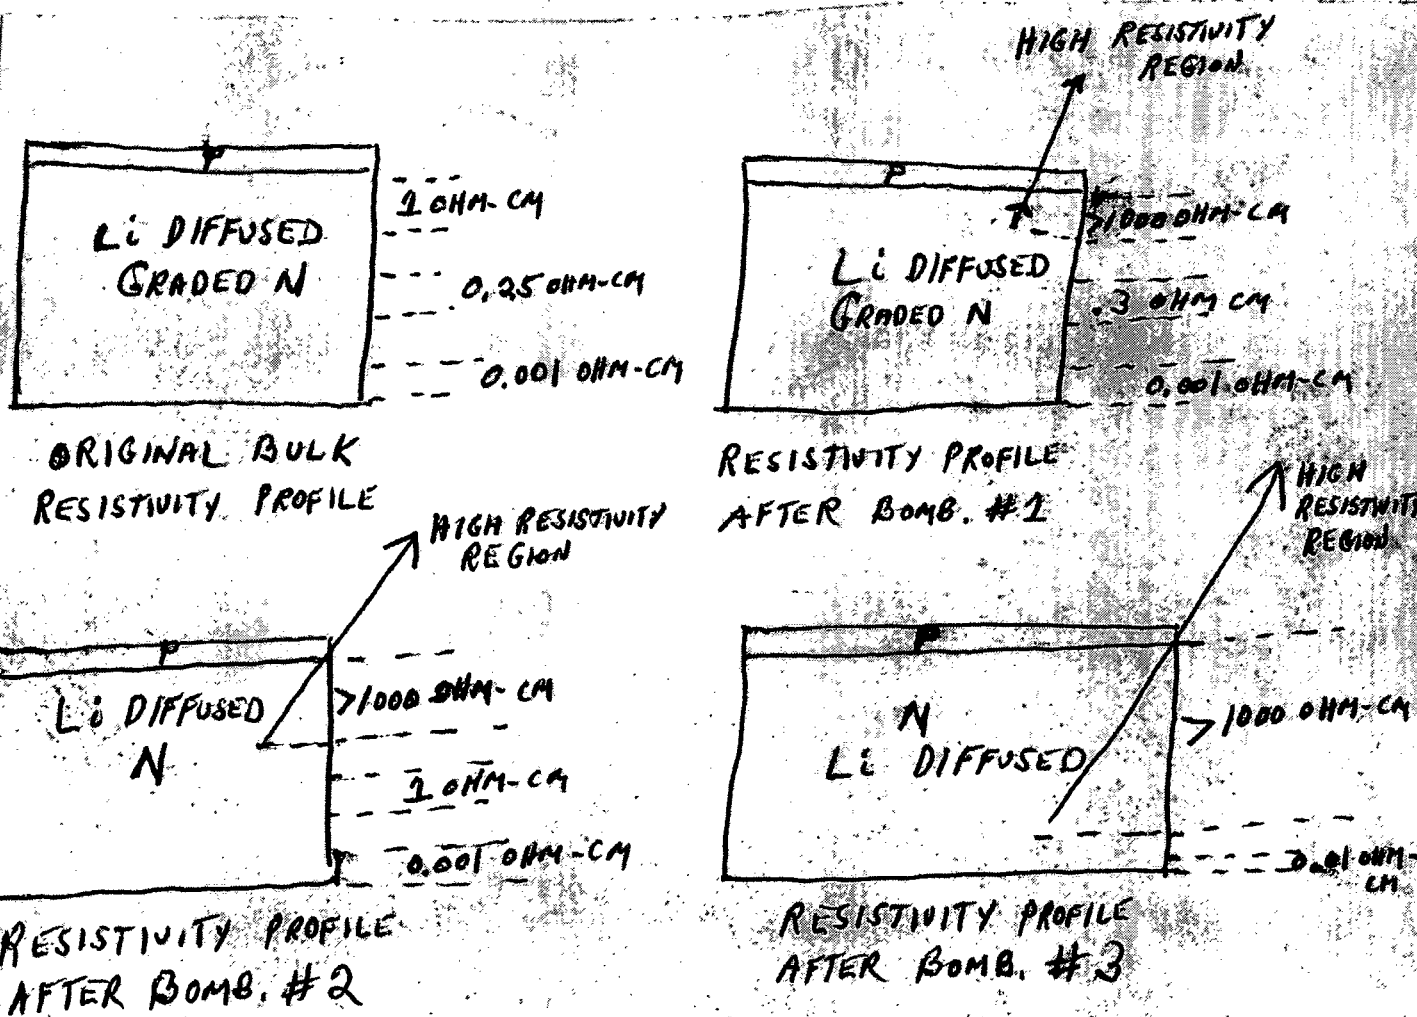 HIGH RESISTIVITY
REGION
P
1 OHM-CM
Li DIFFUSED
GRADED N
0.25 OHM-CM
0.001 OHM-CM
ORIGINAL BULK
RESISTIVITY PROFILE
P
>1000 OHM-CM
Li DIFFUSED
GRADED N
.3 OHM CM
0.001 OHM-CM
RESISTIVITY PROFILE
AFTER BOMB. #1
HIGH RESISTIVITY
REGION
P
Li DIFFUSED
N
>1000 OHM-CM
1 OHM-CM
0.001 OHM-CM
RESISTIVITY PROFILE
AFTER BOMB. #2
HIGH
RESISTIVIT
REGION
P
N
Li DIFFUSED
>1000 OHM-CM
0.01 OHM-
CM
RESISTIVITY PROFILE
AFTER BOMB. #3